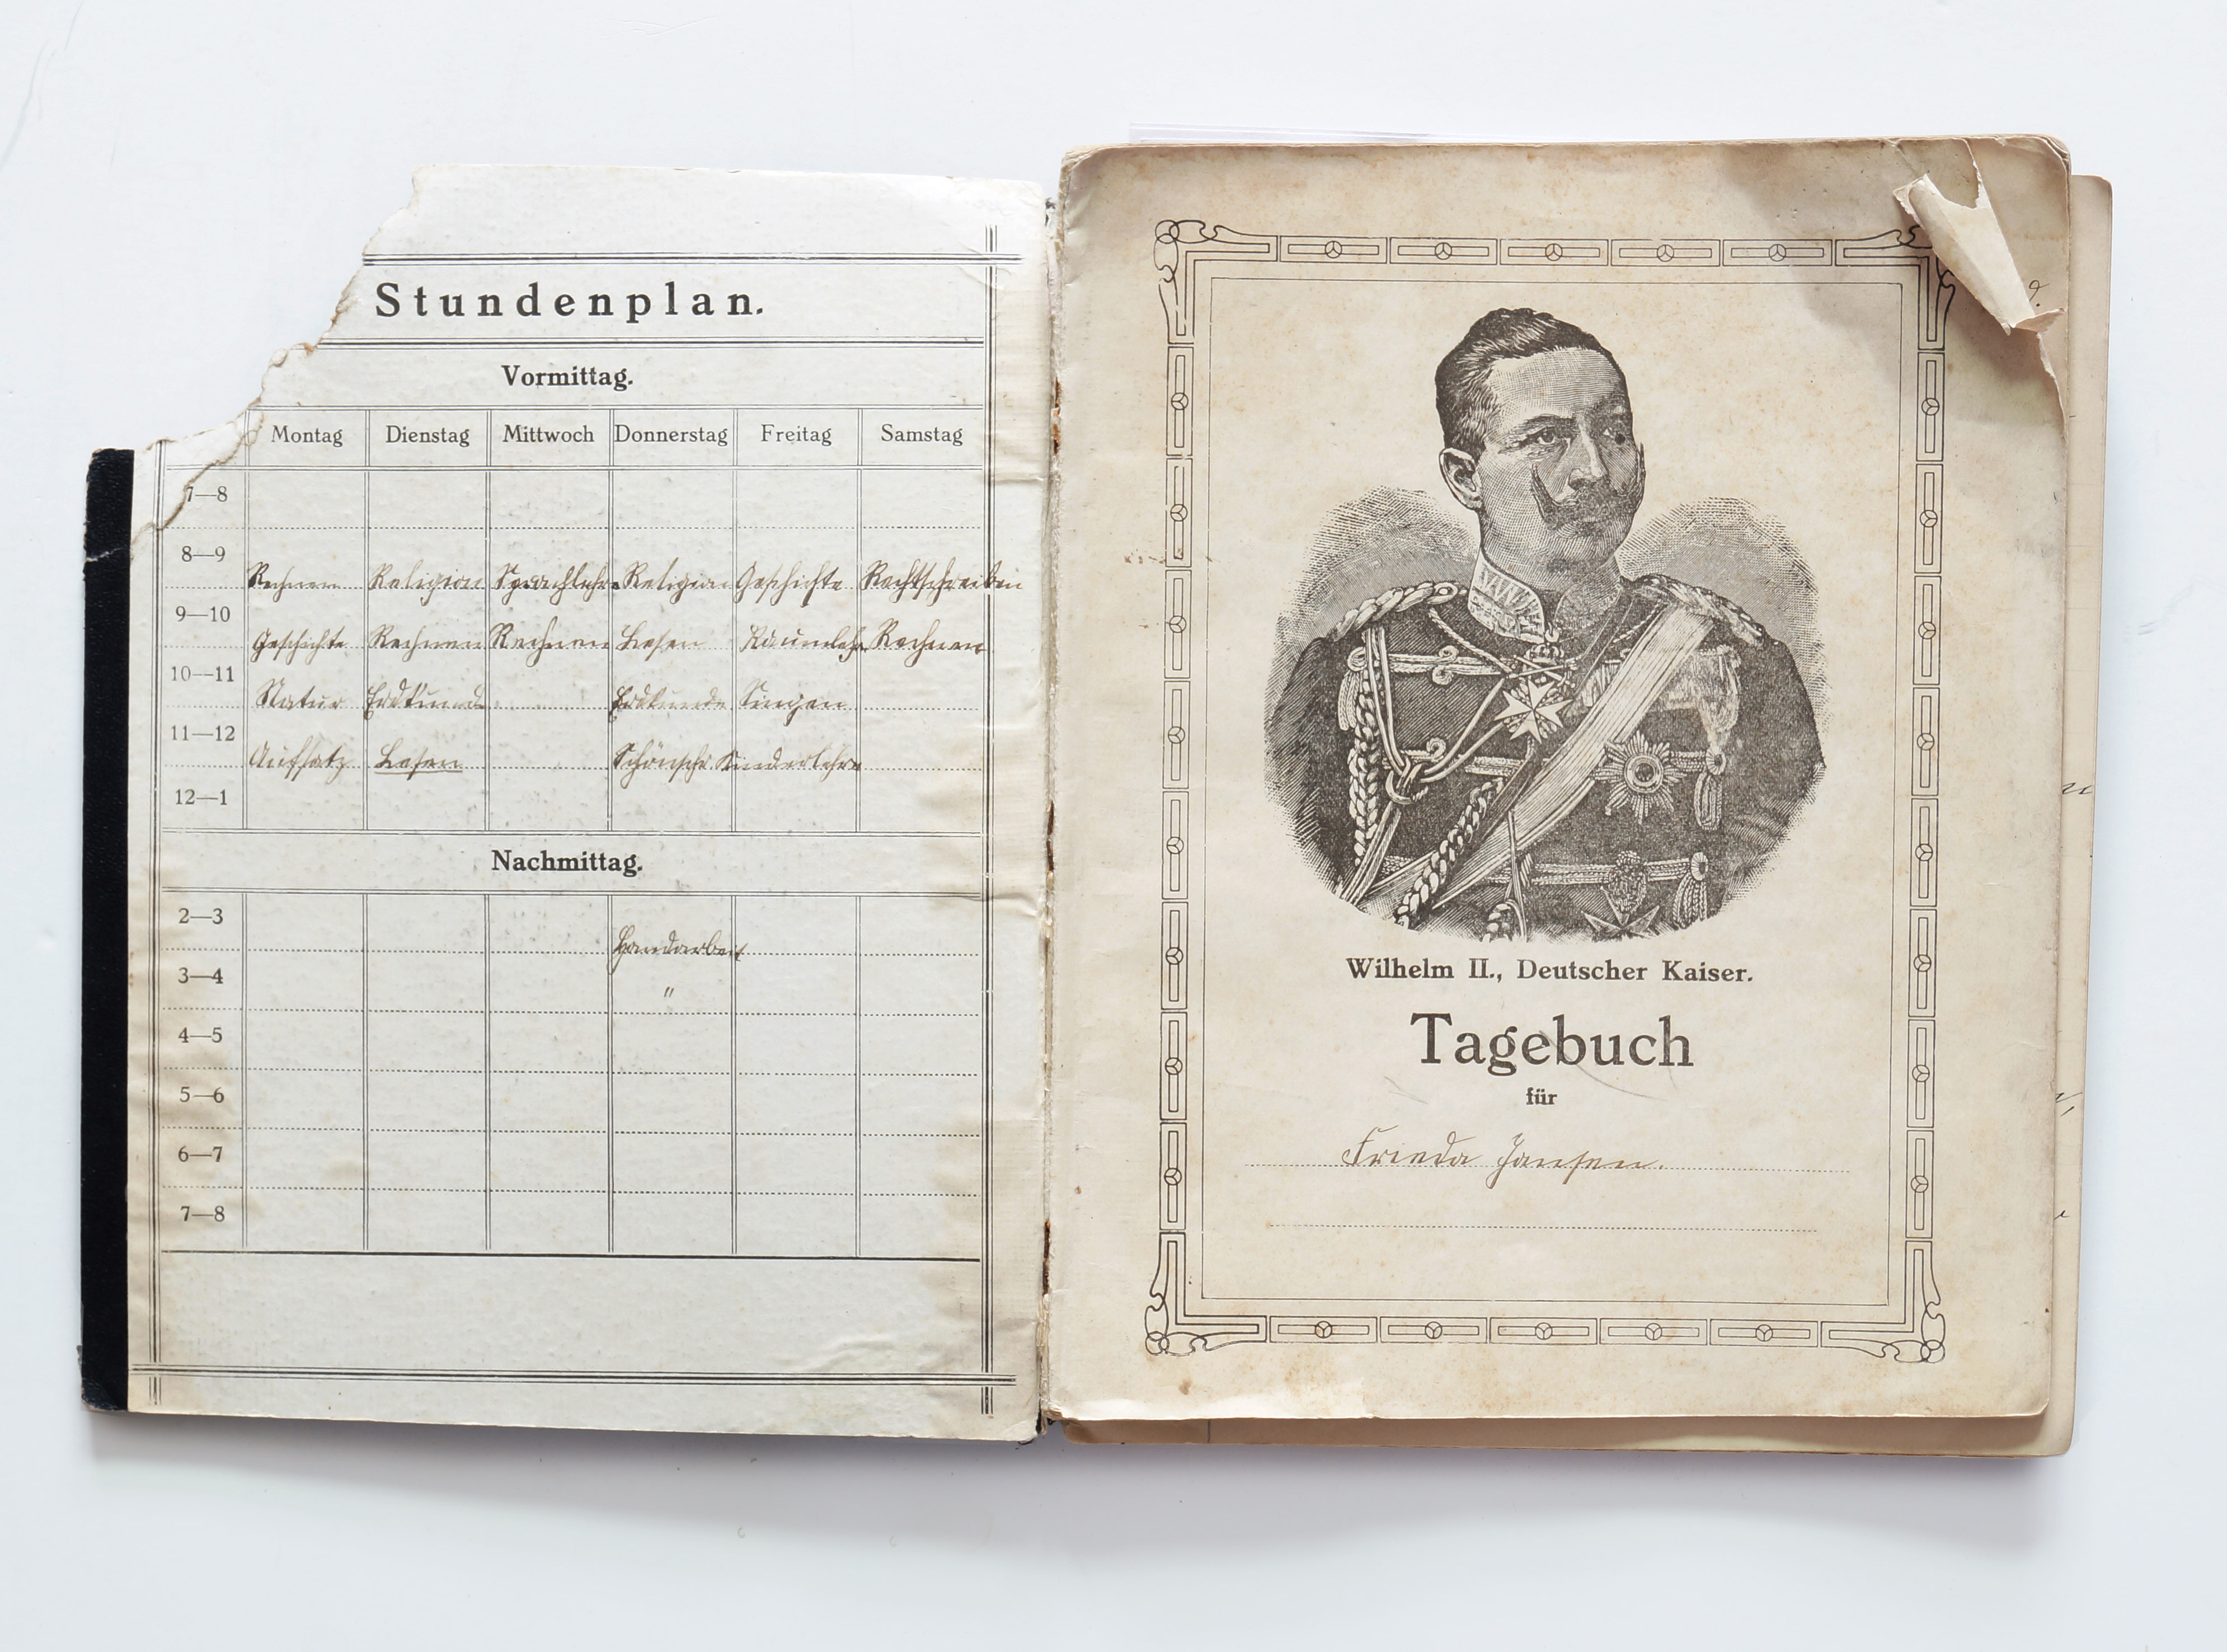 Stundenplan.
Vormittag.
Montag Dienstag Mittwoch Donnerstag Freitag Samstag
7—8
8—9
Rechnen Religion Sprachlehre Religion Geschichte Rechtschreiben
9—10
Geschichte Rechnen Rechnen Lesen Raumlehre Rechnen
10—11
Natur Erdkunde Erdkunde Singen
11—12
Aufsatz Lesen Schönschr Kinderlehre
12—1
Nachmittag.
2—3
Handarbeit
3—4
"
4—5
5—6
6—7
7—8
Wilhelm II., Deutscher Kaiser.
Tagebuch
für
Frieda Jansen.